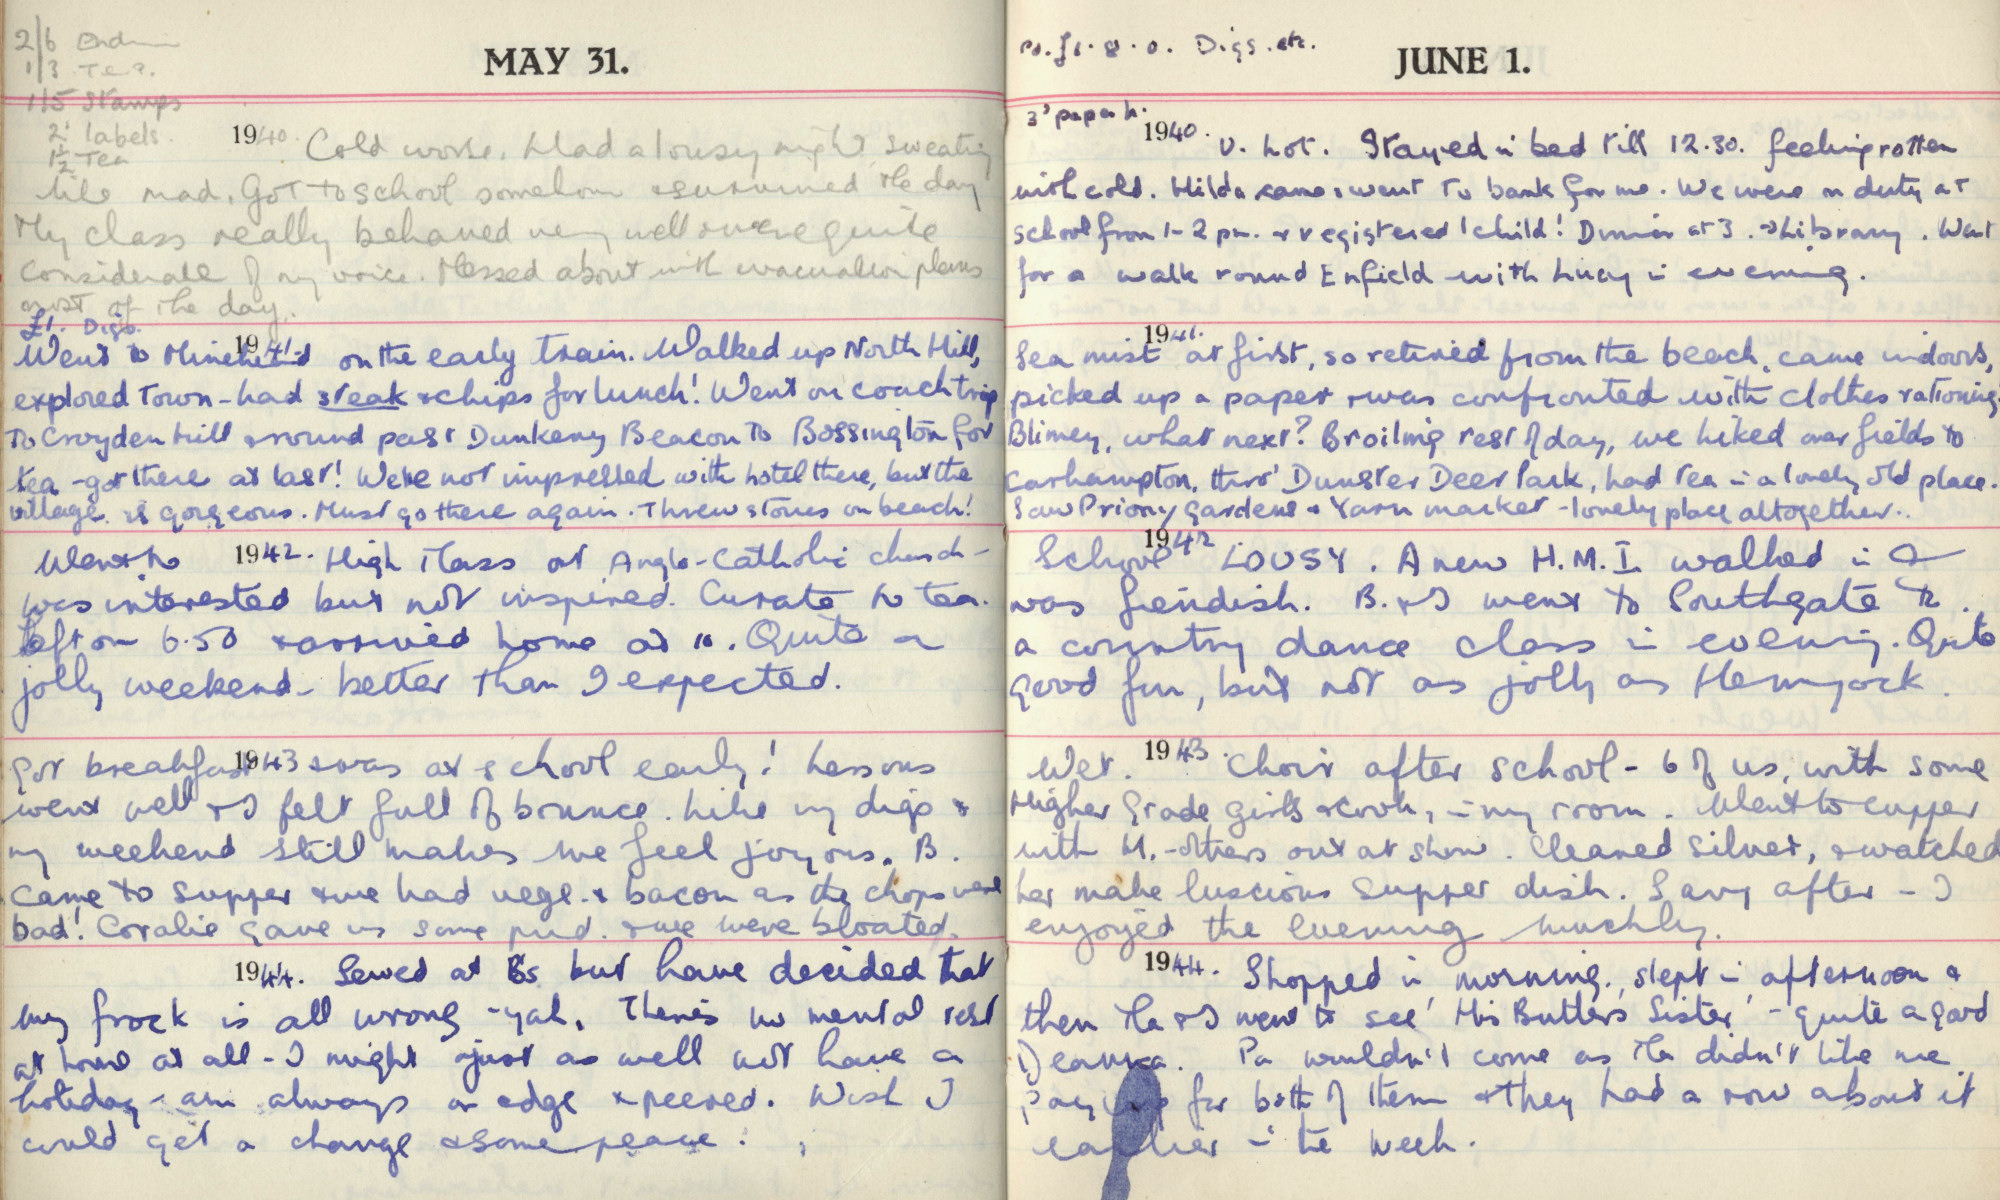 2/6
1/3 Tea.
1/5 Stamps
2' labels.
1½ Tea
MAY 31.
1940. Cold worse. Had a lousy night sweating
like mad. Got to school somehow & survived the day
My class really behaved very well & were quite
considerate of my voice. Messed about with evacuation plans
most of the day.
£1. Digs.
1941
Went to Minehead on the early train. Walked up North Hill,
explored Town - had steak & chips for lunch! Went on coach trip
to Croyden Hill & round past Dunkery Beacon to Bossington for
tea - got there at last! Were not impressed with hotel there, but the
village is gorgeous. Must go there again. Threw stones on beach!
Went to 1942. High Mass at Anglo-Catholic church -
was interested but not inspired. Curate to tea.
Left on 6.50 & arrived home at 11. Quite a
jolly weekend - better than I expected.
Got breakfast 1943 & was at school early! Lessons
went well & I felt full of bounce. Like my digs &
my weekend still makes me feel joyous. B.
came to supper & we had vege. & bacon as the chops were
bad! Coralie gave us some pud. & we were bloated.
1944. Sewed at Bs. but have decided that
my frock is all wrong - yah. There's no mental rest
at home at all - I might just as well not have a
holiday - am always on edge & peeved. Wish I
could get a change & some peace.
£1.8.0. Digs. etc.
JUNE 1.
3'
1940. V. hot. Stayed in bed till 12.30. feeling rotten
with cold. Hilda came & went to bank for me. We were on duty at
school from 1-2 pm. & registered 1 child! Dinner at 3. → Library. Went
for a walk round Enfield with Lucy in evening.
1941.
Sea mist at first, so retired from the beach, came indoors,
picked up a paper & was confronted with clothes rationing!
Blimey, what next? Broiling rest of day, we hiked over fields to
Carhampton, thro' Dunster Deer Park, had tea in a lovely old place.
Saw Priory gardens & Yarn market - lovely place altogether..
School 1942 LOUSY. A new H.M.I. walked in &
was fiendish. B. & I went to Southgate to
a country dance class in evening. Quite
good fun, but not as jolly as Hemyock.
Wet. 1943. Choir after school - 6 of us, with some
Higher Grade girls & cooks, in my room. Went to supper
with M. - others out at show. Cleaned silver, & watched
her make luscious supper dish. Savy after - I
enjoyed the evening muchly.
1944. Shopped in morning, slept in afternoon &
then Ma & I went to see 'His Butler's Sister' - quite a good
Deanna. Pa wouldn't come as Ma didn't like me
paying for both of them & they had a row about it
earlier in the week.